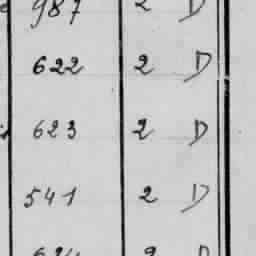 987 2 D
622 2 D
623 2 D
541 2 D
624 2 D